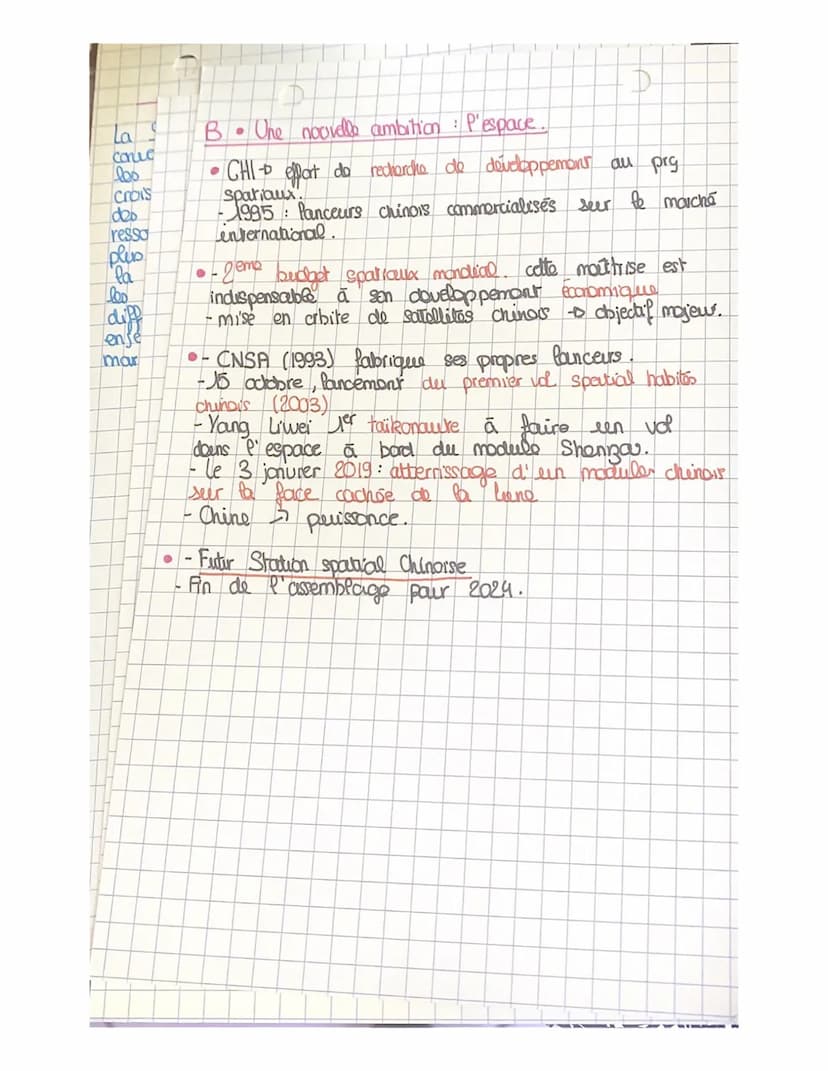 La
les
crois
des
resso
plus
la
les
diff
ense
mar
B • Une nouvelle ambition : l'espace.
• CHI → effort de recherche de développement au prg
spatiaux.
- 1995 : lanceurs chinois commercialisés sur le marché
international.
• - 2eme budget spatiaux mondial. cette maîtrise est
indispensable à son développement économique
- mise en orbite de satellites chinois → objectif majeur.
• - CNSA (1993) fabrique ses propres lanceurs.
- 15 octobre, lancement du premier vol spatial habités
chinois (2003)
- Yang Liwei 1er taïkonaute à faire un vol
dans l'espace à bord du module Shenzou.
- Le 3 janvier 2019 : atterrissage d'un module chinois
sur la face cachée de la lune
- Chine → puissance.
• - Futur Station spatial Chinoise
- Fin de l'assemblage pour 2024.